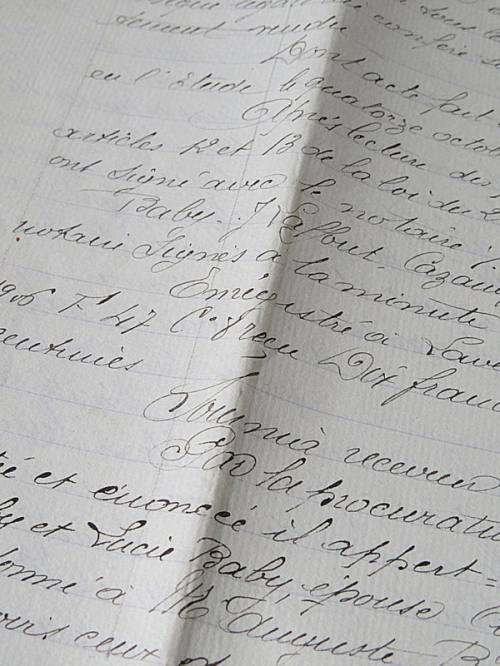 sous le
dument
Dont acte fait
en l'Etude le quatorze octo
Après lecture des
articles 12 et 13 de la loi du
ont signé avec le notaire
Baby. J. Cazau
notaire Signés à la minute
Enregistré à Lav
1906 F° 47 C. 8 reçu Dix franc
centimes
Par la procurati
et énoncée il appert =
et Lucie Baby, épouse
à M Auguste B
ceux